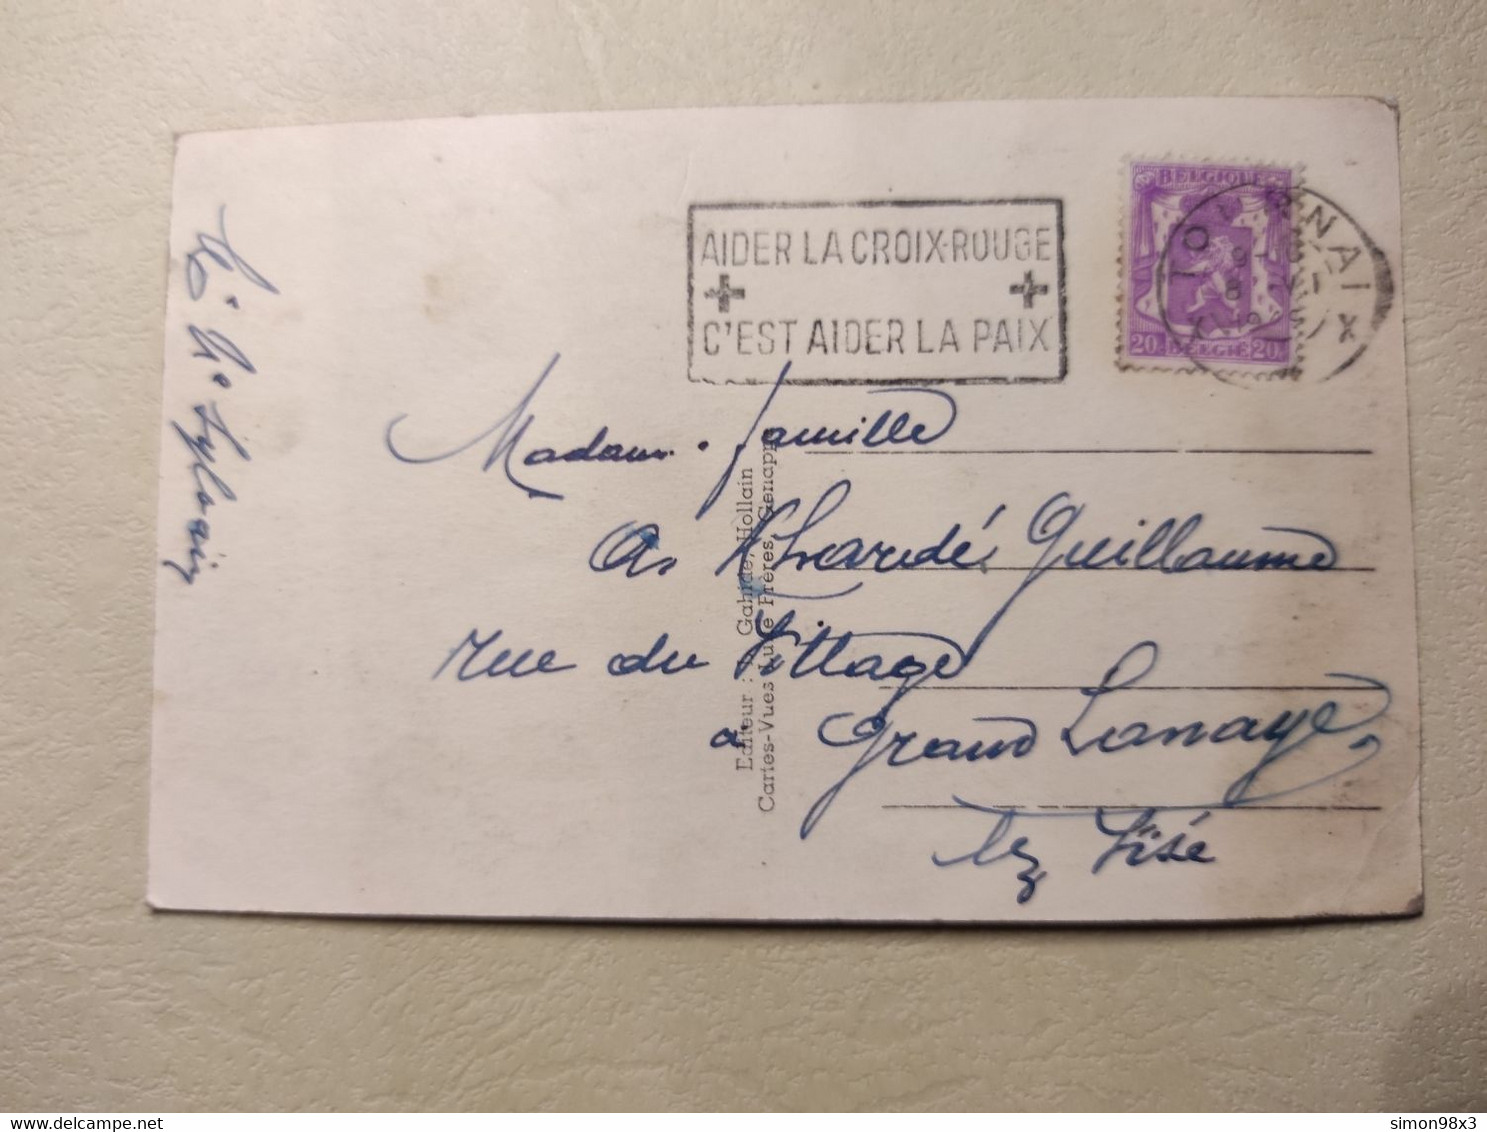 AIDER LA CROIX-ROUGE
C'EST AIDER LA PAIX
BELGIQUE
20 BELGIË 20
TOURNAI
X
Madame famille
Guillaume
rue du Village
a Grand Lanaye
lez Visé
Editeur : Gahide, Hollain
Cartes-Vues Frères, Genappe
Sylvain
simon98x3